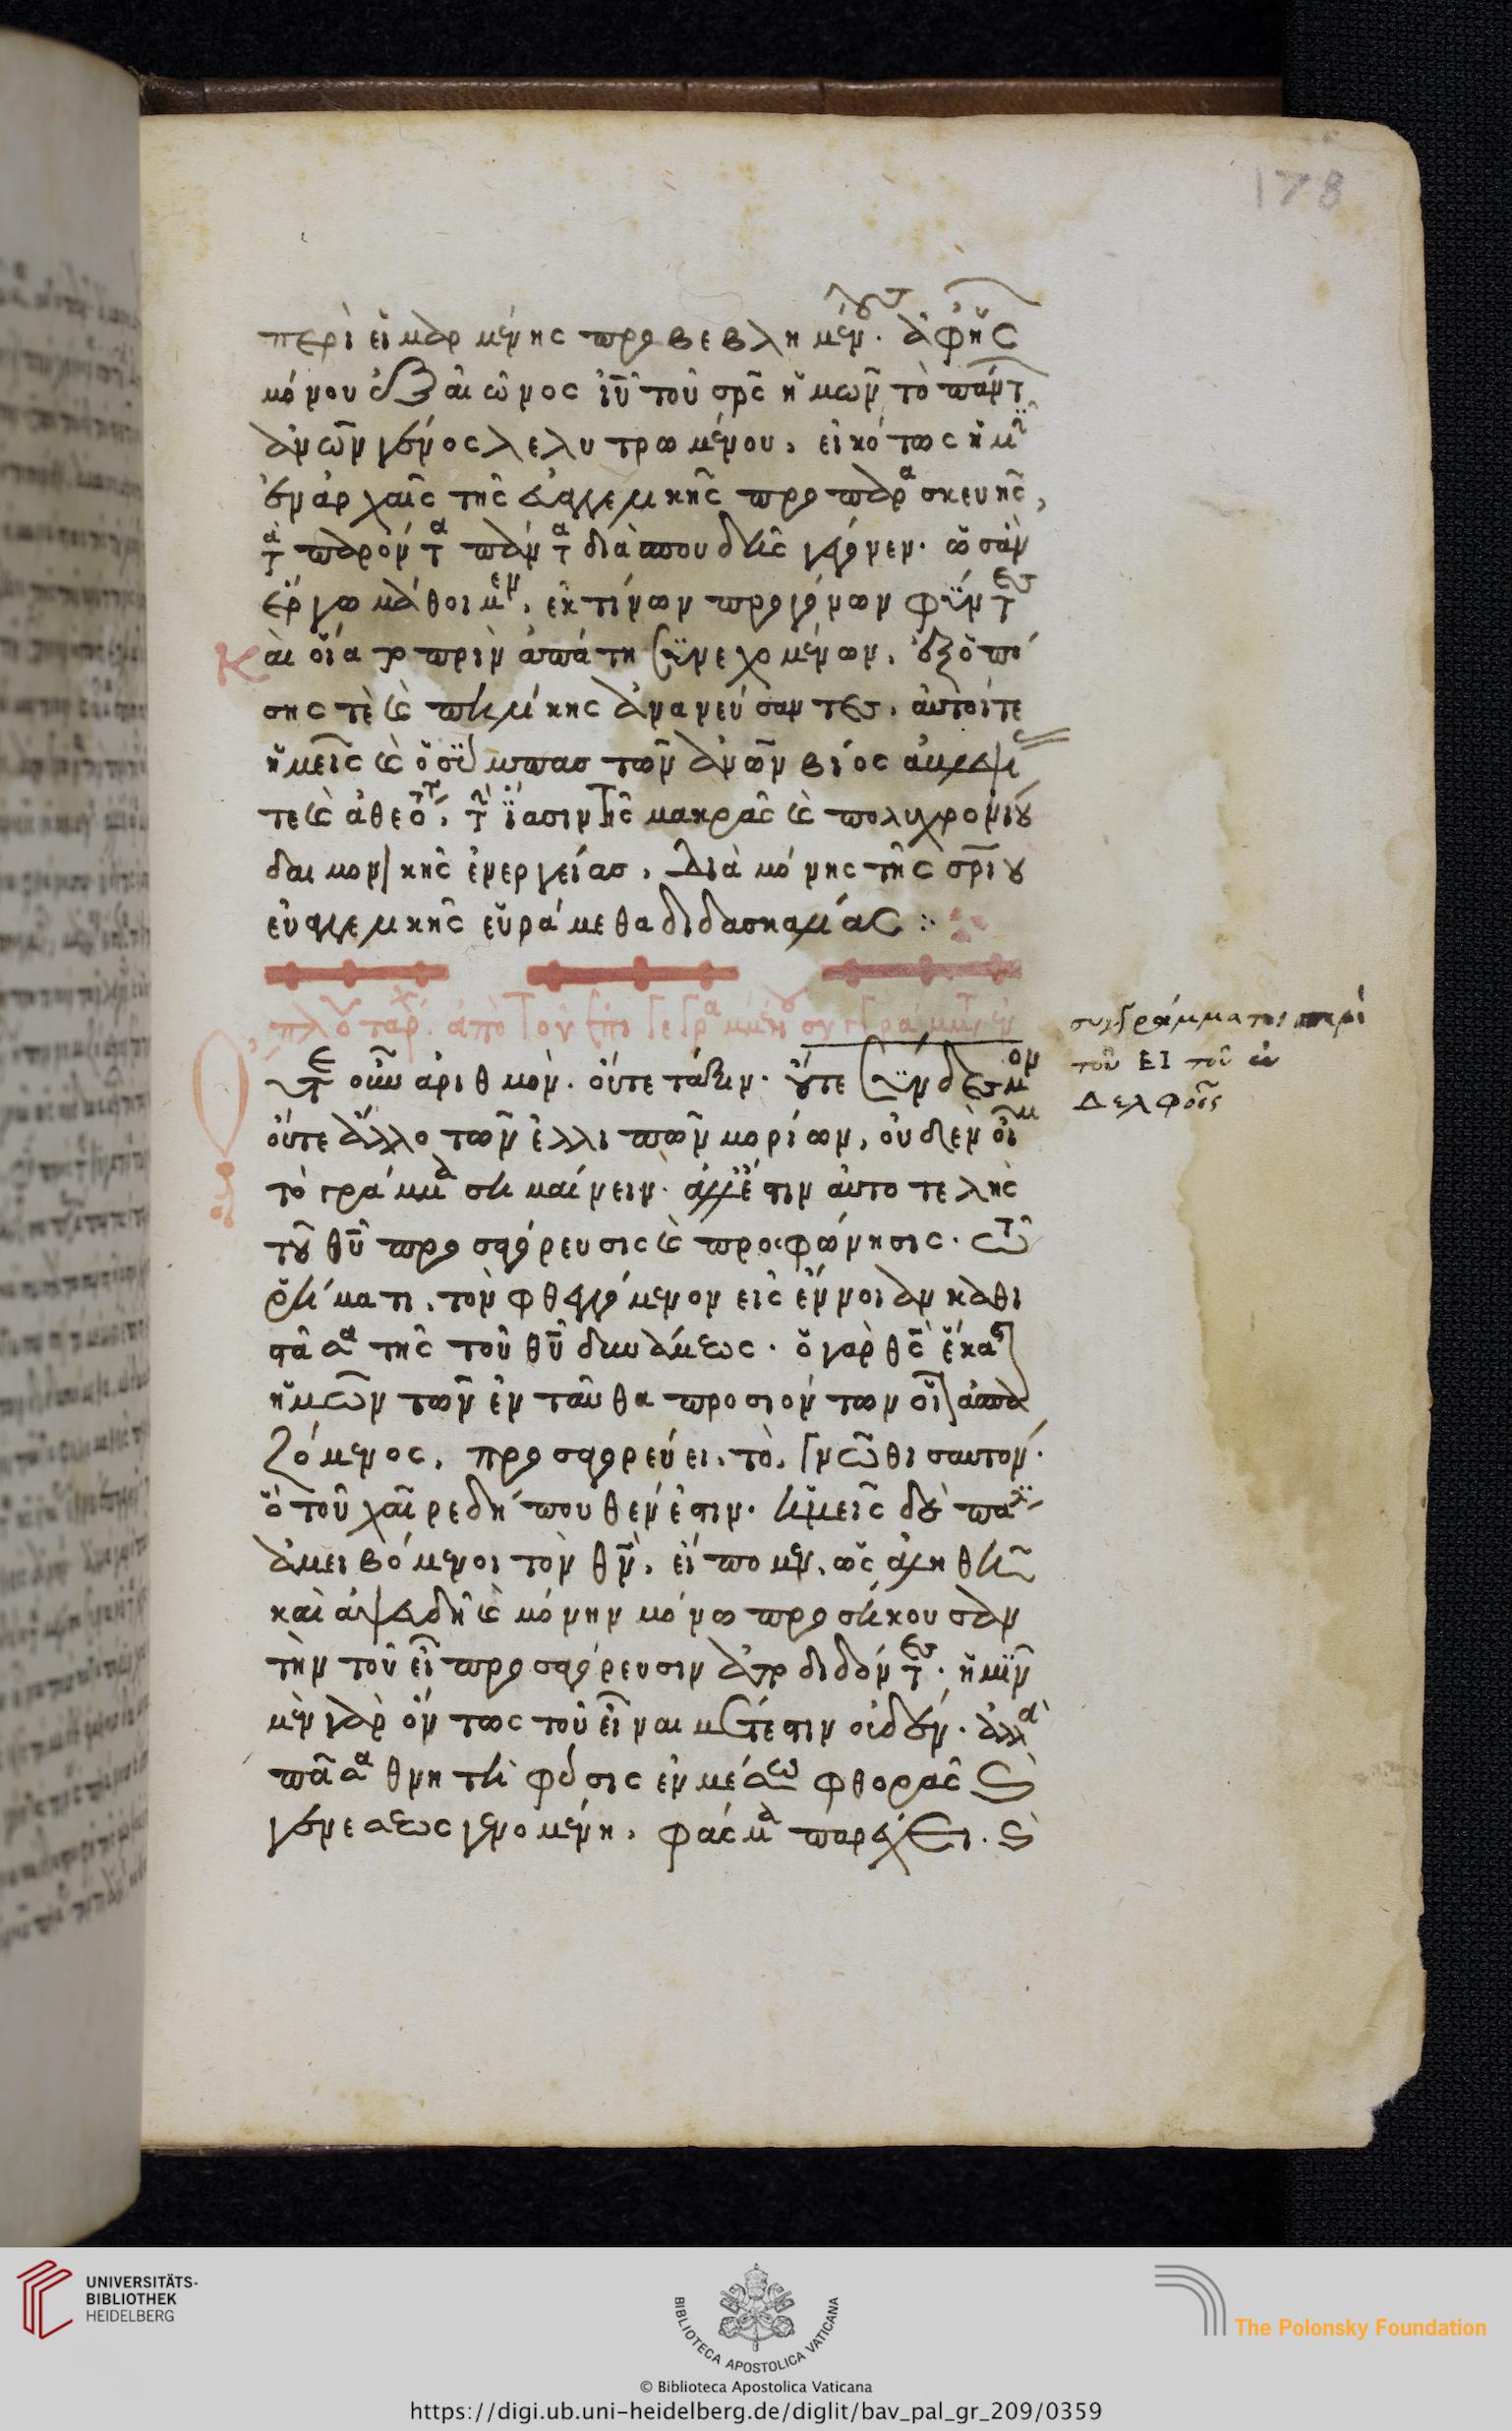 178
περὶ εἱμαρμένης προβεβλημένων λόγους. ἀφ' ἧς
μόνου ἐξ αἰῶνος ἰυ τοῦ σρς ἡμῶν τὸ πάντων
ἀνων γένος λελυτρωμένου, εἰκότως ἡμῖν
ἐν ἀρχαῖς τῆς εὐαγγελικῆς προπαρασκευῆς,
τὰ παρόντα πάντα διὰ σπουδῆς γέγονεν. ὡς ἂν
ἔργω μάθοιμεν, ἐκ τίνων προγόνων φύντες
Καὶ οἵα τὸ πρὶν ἀπάτη συνεχομένων, ἐξ ὅπη
σης τὲ καὶ πηλίκης ἀνανεύσαντες, αὐτοί τε
ἡμεῖς καὶ ὁ σύμπας τῶν ἀνων βίος
τε καὶ ἀθεότητος, τὴν ἴασιν τῆς μακρᾶς καὶ πολυχρονίου
δαιμονικῆς ἐνεργείας, διὰ μόνης τῆς σρίου
εὐαγγελικῆς εὑράμεθα διδασκαλίας :
πλουτάρχ. ἀπὸ τοῦ ἐπιγεγραμμένου συγγράμματος
συγγράμματος περὶ
τοῦ ΕΙ τοῦ ἐν
Δελφοῖς
Οὔτε οὖν ἀριθμὸν. οὔτε τάξιν. οὔτε σύνδεσμον
οὔτε ἄλλο τῶν ἐλλιπῶν μορίων, οὐδὲν οἶμαι
τὸ γράμμα σημαίνειν. ἀλλ' ἔστιν αὐτοτελὴς
τοῦ θυ προσαγόρευσις καὶ προσφώνησις. τῶ
ῥήματι, τὸν φθεγγόμενον εἰς ἔννοιαν καθι
στᾶσα τῆς τοῦ θυ δυνάμεως. ὁ γὰρ θς ἕκαστον
ἡμῶν τῶν ἐνταῦθα προσιόντων οἷον ἀσπα
ζόμενος, προσαγορεύει, τὸ, γνῶθι σαυτόν.
ὃ τοῦ χαῖρε δήπουθεν ἐστιν. ἡμεῖς δὲ πάλιν
ἀμειβόμενοι τὸν θν, εἴπομεν, ὡς ἀληθῆ
καὶ ἀψευδῆ καὶ μόνην μόνω προσήκουσαν
τὴν τοῦ εἶ προσαγόρευσιν ἀποδιδόντες. ἡμῖν
μὲν γὰρ ὄντως τοῦ εἶναι μέτεστιν οὐδέν. ἀλλὰ
πᾶσα θνητὴ φύσις ἐν μέσω φθορᾶς καὶ
γενέσεως γενομένη, φάσμα παρέχει. καὶ
UNIVERSITÄTS-
BIBLIOTHEK
HEIDELBERG
BIBLIOTECA APOSTOLICA VATICANA
The Polonsky Foundation
© Biblioteca Apostolica Vaticana
https://digi.ub.uni-heidelberg.de/diglit/bav_pal_gr_209/0359